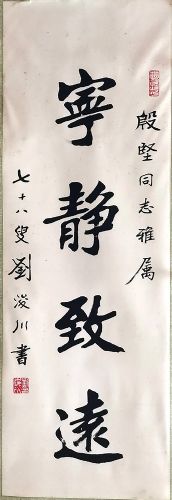 殷堅同志雅属
寧静致遠
七十八叟劉浚川書